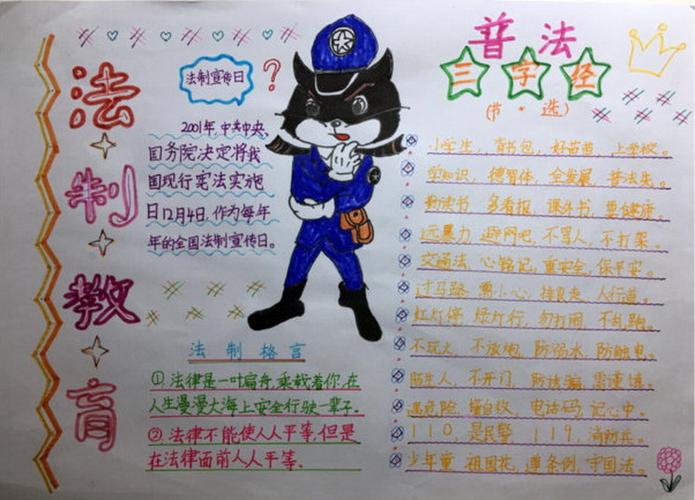 法制教育
法制宣传日
?
2001年,中共中央,
国务院决定将我
国现行宪法实施
日12月4日,作为每年
年的全国法制宣传日。
法制格言
①法律是一叶扁舟,乘载着你,在
人生漫漫大海上安全行驶一辈子。
②法律不能使人人平等,但是
在法律面前人人平等。
普法
三字经
(节·选)
小学生,背书包,好苗苗,上学校。
学知识,德智体,全发展,普法先。
勤读书,多看报,课外书,要健康。
远暴力,避网吧,不骂人,不打架。
交通法,心铭记,重安全,保平安。
过马路,需小心,排良走,人行道。
红灯停,绿灯行,勿打闹,不乱跑。
不玩火,不放炮,防溺水,防触电。
陌生人,不开门,防诱骗,需谨慎。
遇危险,懂自救,电话码,记心中。
110,是民警,119,消防兵。
少年童,祖国花,遵条例,守国法。